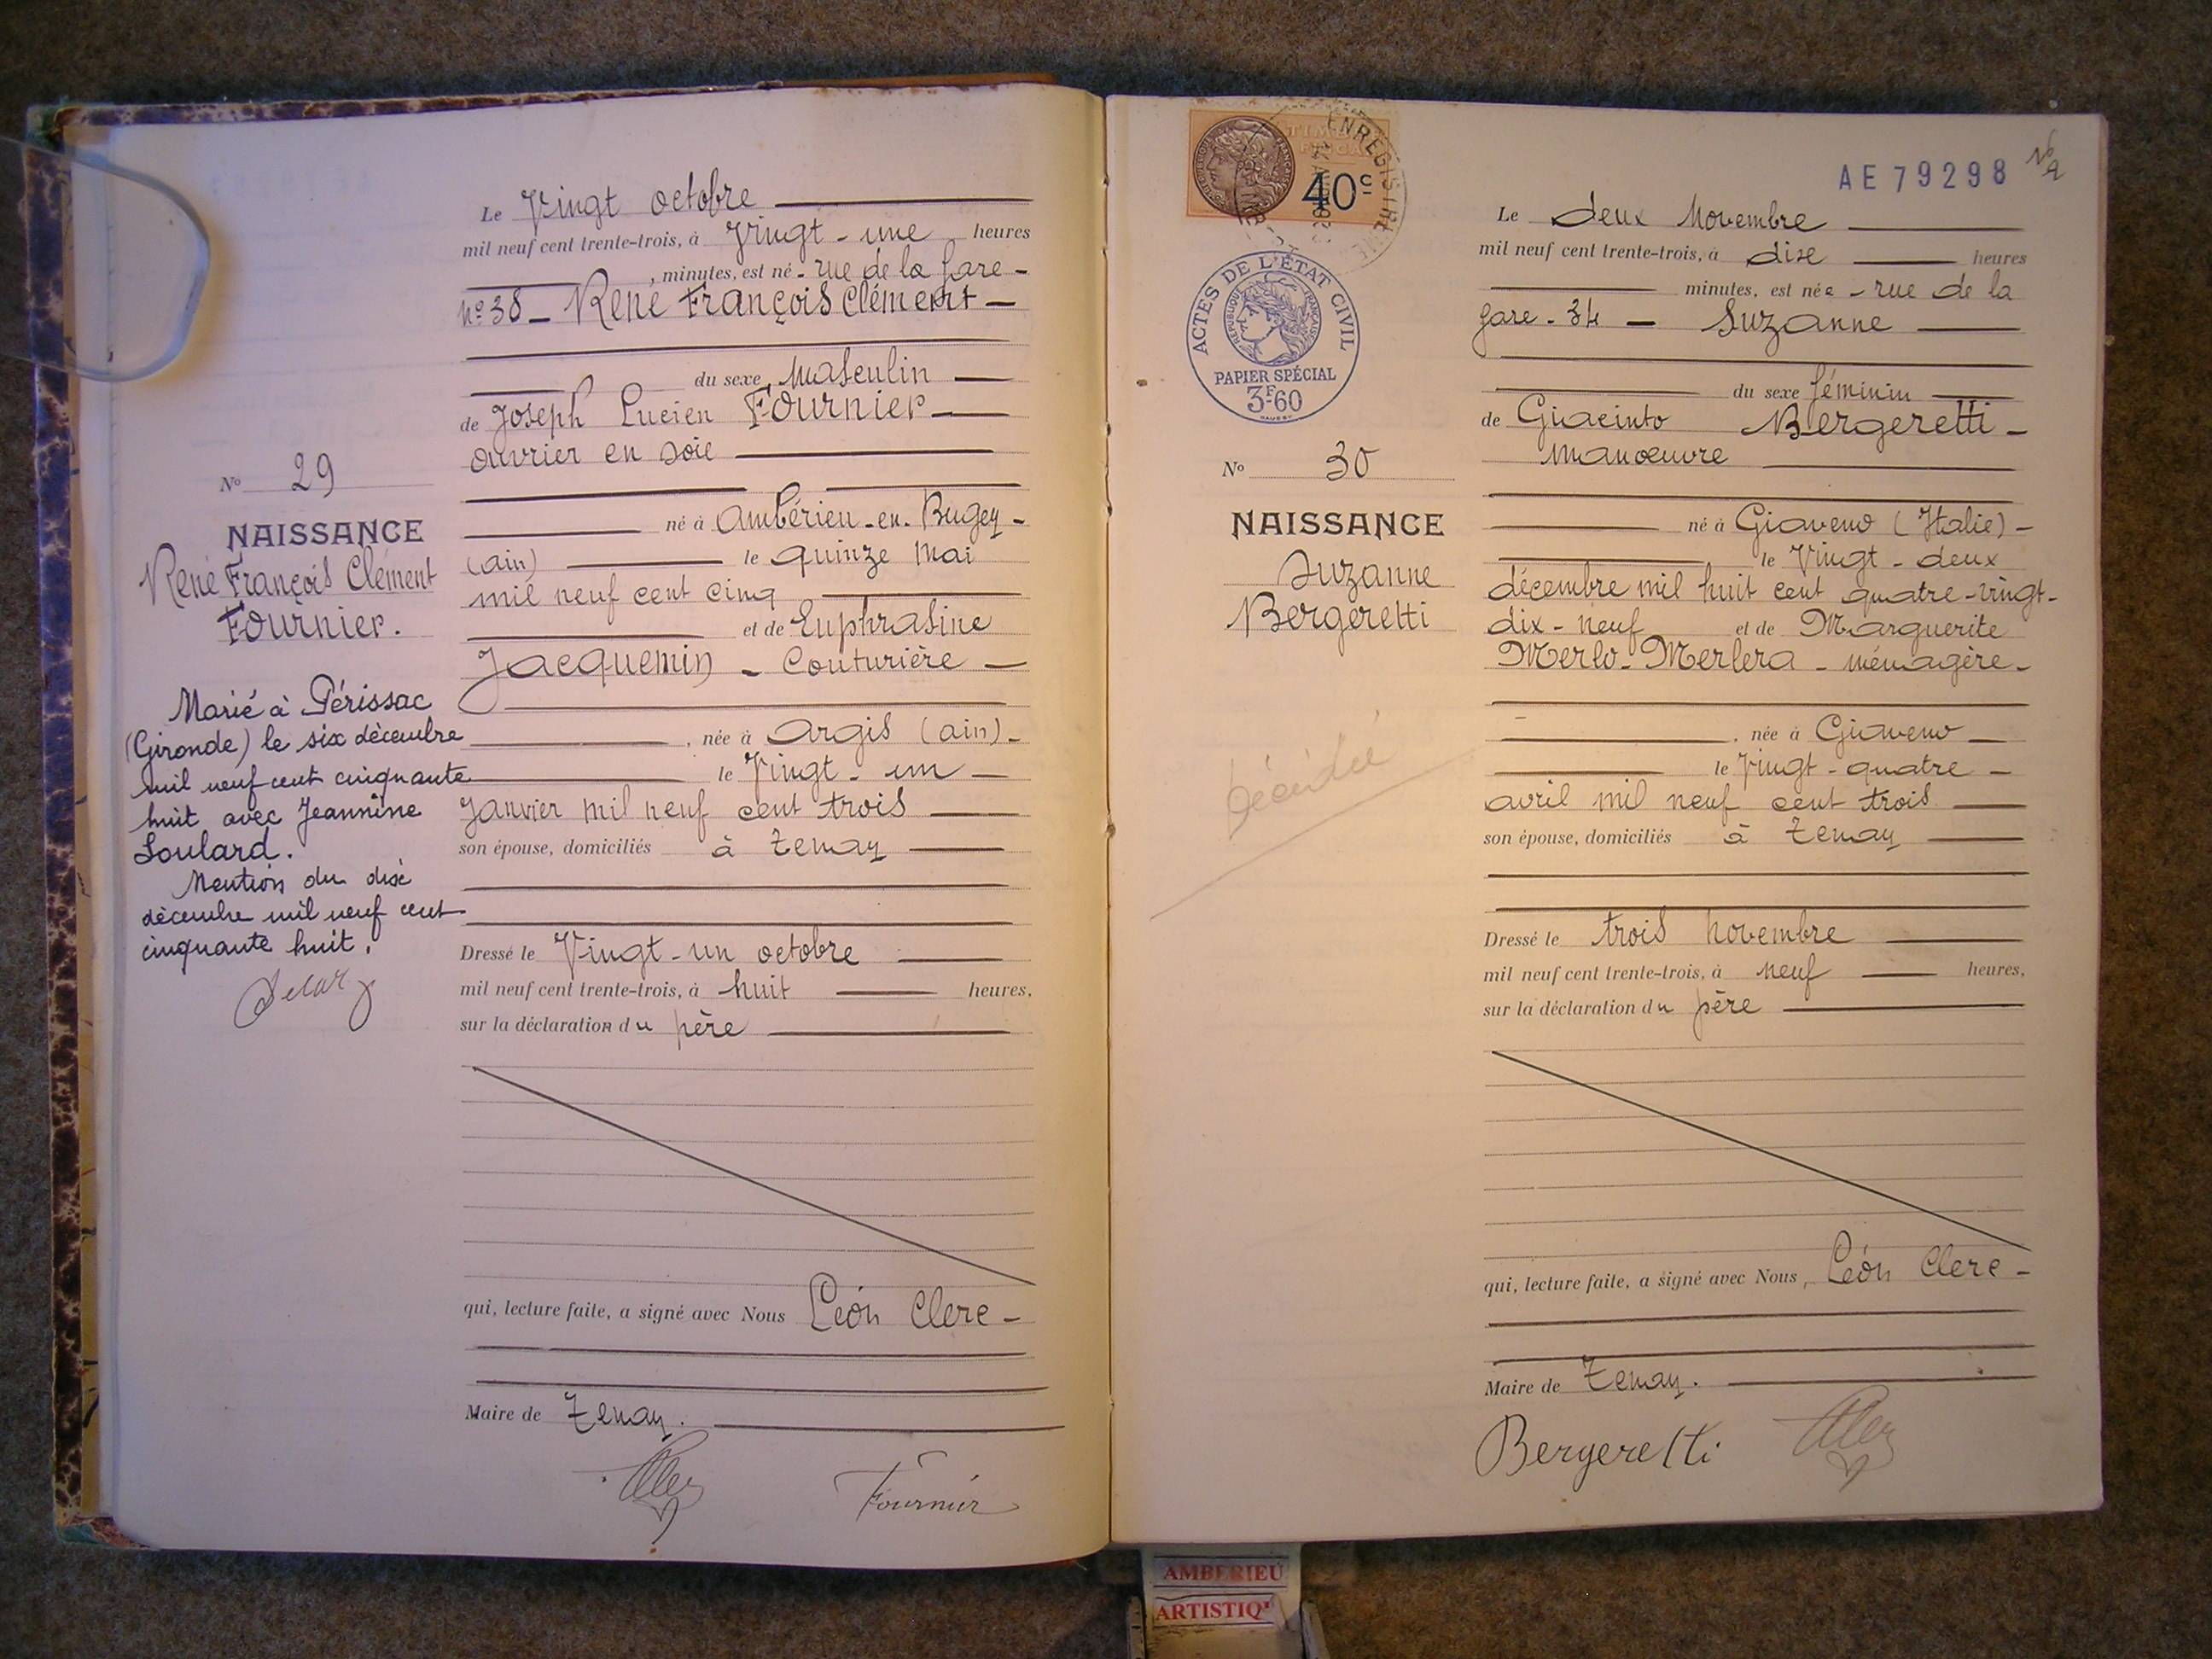 Le Vingt octobre
mil neuf cent trente-trois, à Vingt - une heures
, minutes, est né - rue de la gare -
n° 38 - René François Clément -
du sexe Masculin
de Joseph Lucien Fournier -
ouvrier en soie
né à Ambérieu-en-Bugey -
(ain) le quinze mai
mil neuf cent cinq
et de Euphrasine
Jacquemin - Couturière -
, née à Argis (ain) -
le Vingt - un -
Janvier mil neuf cent trois
son épouse, domiciliés à Tenay
Dressé le Vingt-un octobre
mil neuf cent trente-trois, à huit heures,
sur la déclaration du père
qui, lecture faite, a signé avec Nous Léon Clerc -
Maire de Tenay.
Fournier
No 29
NAISSANCE
René François Clément
Fournier.
Marié à Périssac
(Gironde) le six décembre
mil neuf cent cinquante
huit avec Jeannine
Soulard.
Mention du dix
décembre mil neuf cent
cinquante huit.
40c
ENREGISTREMENT
ACTES DE L'ÉTAT CIVIL
RÉPUBLIQUE FRANÇAISE
PAPIER SPÉCIAL
3F60
No 30
NAISSANCE
Suzanne
Bergeretti
Décédée
AE 79298
Le deux Novembre
mil neuf cent trente-trois, à dixe heures
minutes, est née - rue de la
gare - 34 - Suzanne
du sexe féminin
de Giacinto Bergeretti -
manoeuvre
né à Giaveno (Italie) -
le Vingt - deux
décembre mil huit cent quatre-vingt-
dix - neuf et de Marguerite
Merlo-Merlera - ménagère -
, née à Giaveno
le Vingt - quatre -
avril mil neuf cent trois
son épouse, domiciliés à Tenay
Dressé le trois Novembre
mil neuf cent trente-trois, à neuf heures,
sur la déclaration du père
qui, lecture faite, a signé avec Nous, Léon Clerc -
Maire de Tenay.
Bergeretti
AMBERIEU
ARTISTIQ